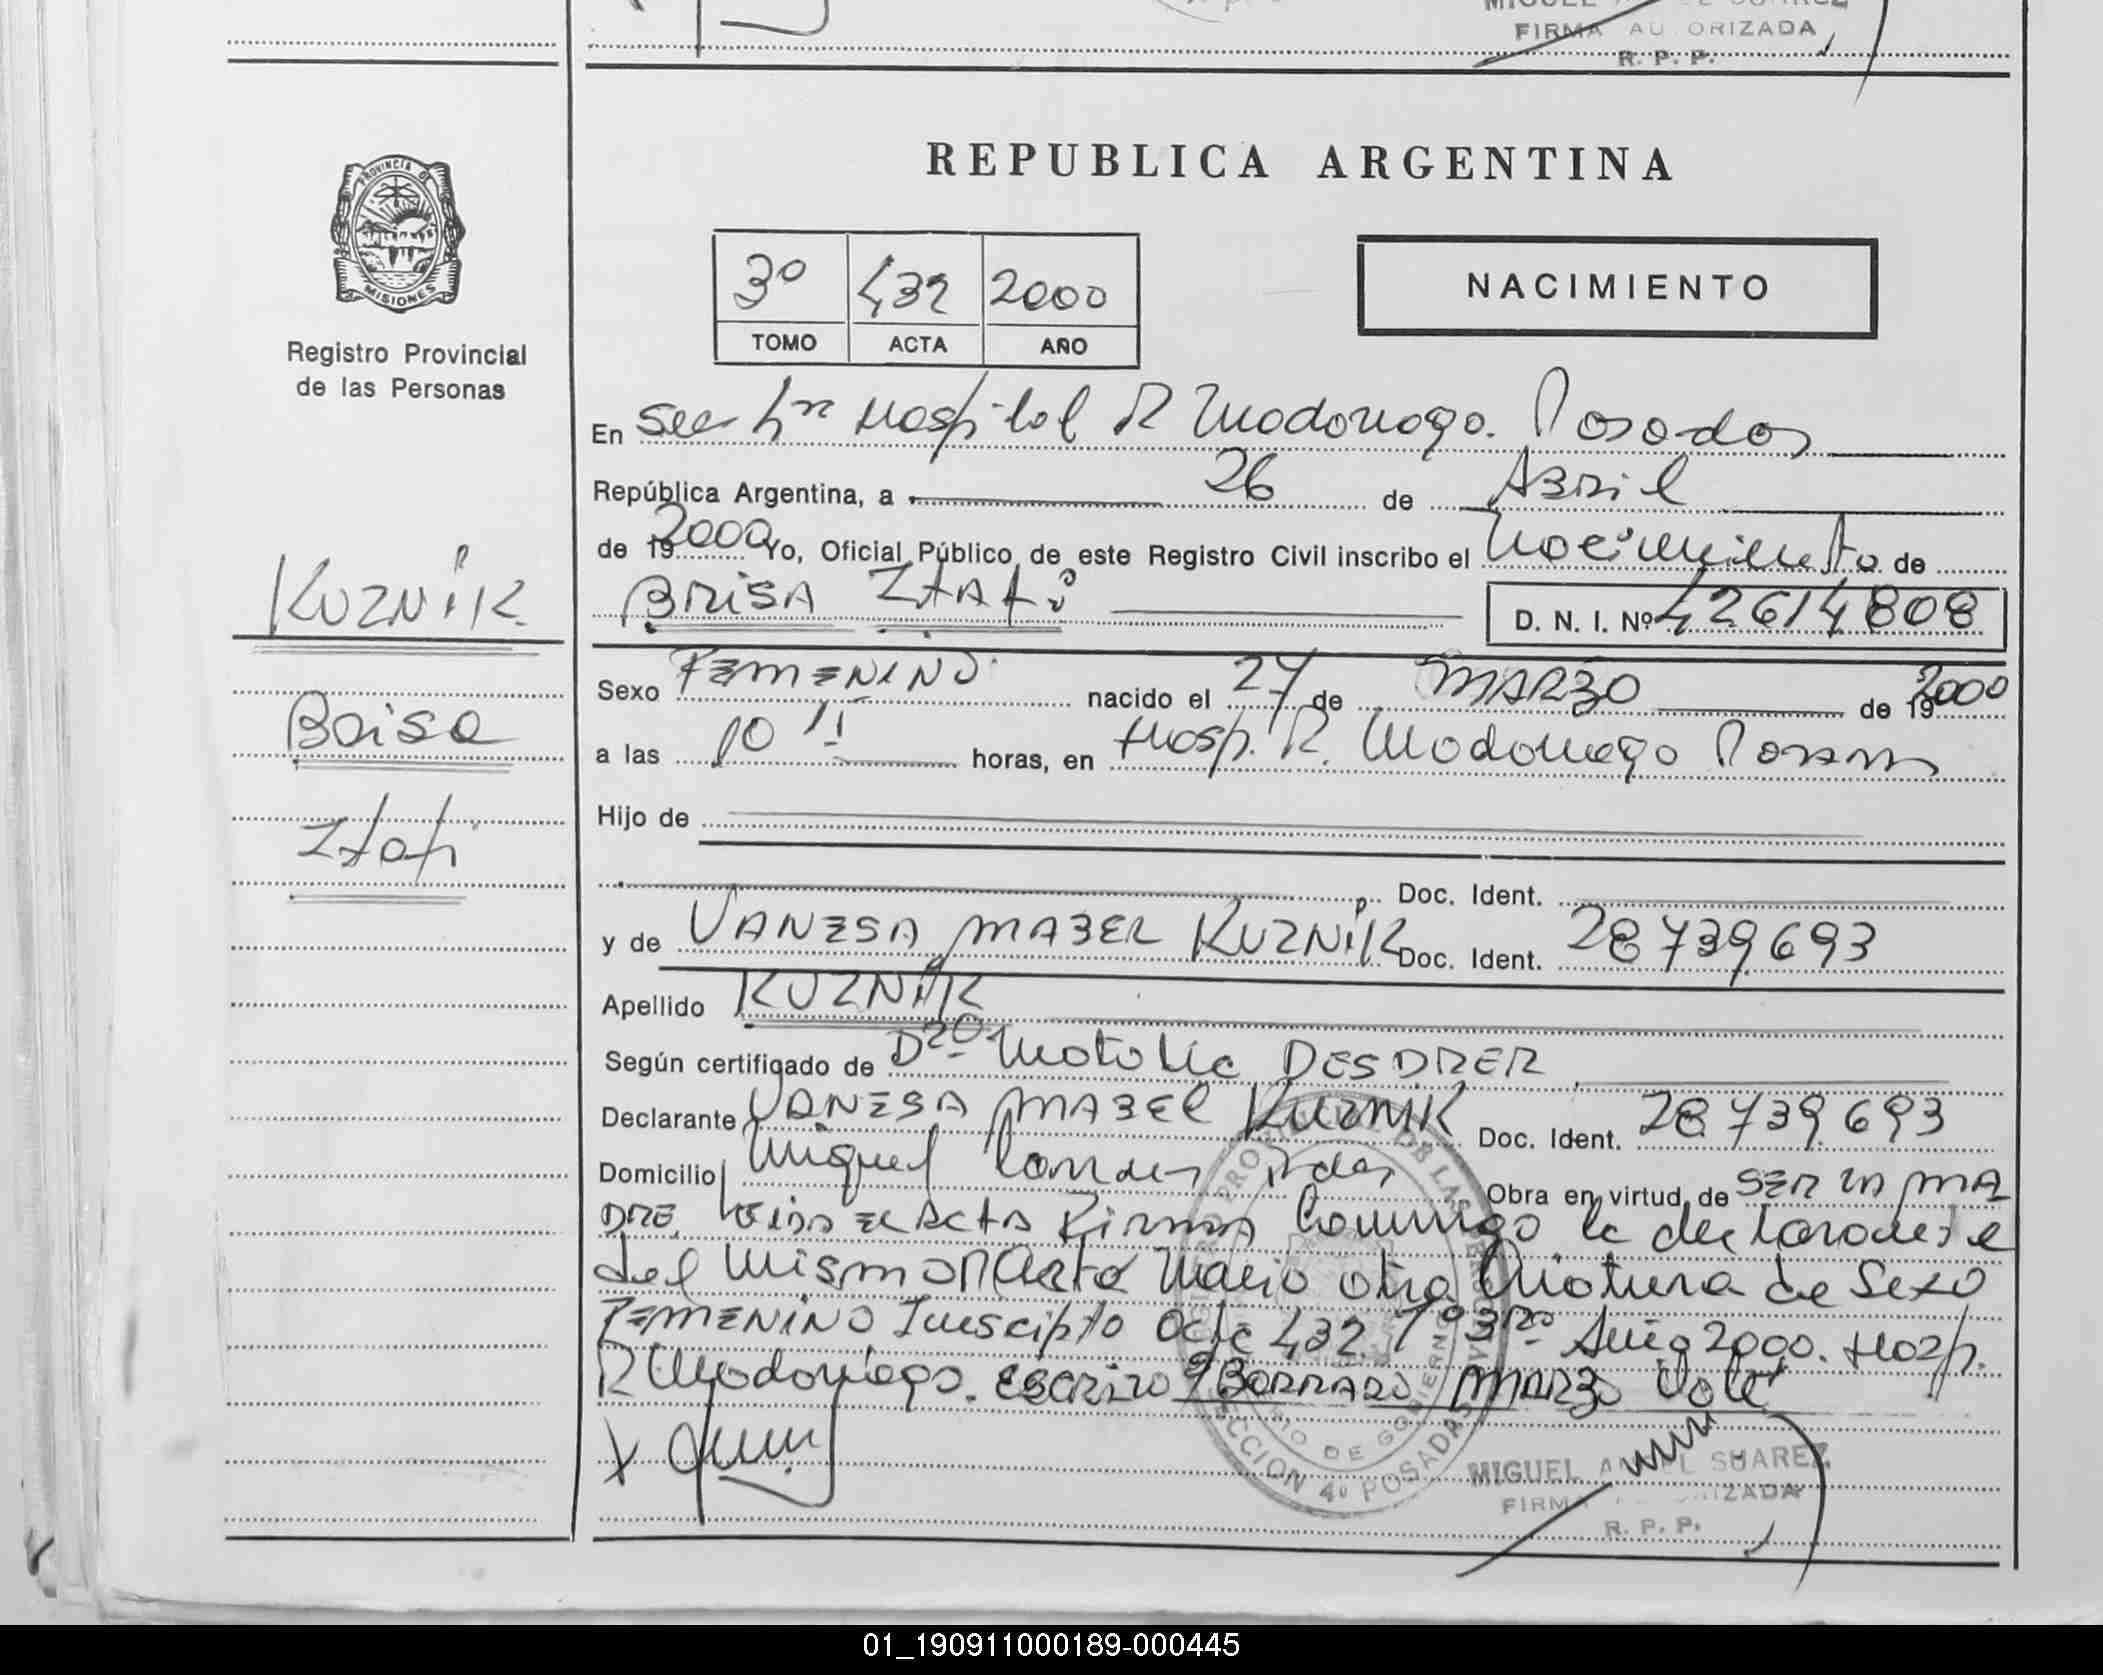 FIRMA AU ORIZADA
R. P. P.
PROVINCIA DE
MISIONES
Registro Provincial
de las Personas
REPUBLICA ARGENTINA
3º 432 2000
TOMO ACTA AÑO
NACIMIENTO
En Hospital R Madariaga. Posadas
República Argentina, a 26 de Abril
de 19 2000 Yo, Oficial Público de este Registro Civil inscribo el Nacimiento de
BRISA Itatí D. N. I. Nº 42614808
Sexo FEMENINO nacido el 27 de MARZO de 19 2000
a las 10 horas, en Hosp. R. Madariaga Posadas
Hijo de
Doc. Ident.
y de VANESA MABEL KUZNIK Doc. Ident. 28739693
Apellido KUZNIK
Según certificado de
Declarante VANESA MABEL KUZNIK Doc. Ident. 28739693
Domicilio Miguel Obra en virtud de SER LA MA
DRE. Leída el Acta Firma Conmigo la declarante
del mismo Parto Nació otra criatura de Sexo
FEMENINO Inscripto Acta 432 Tº 3ro Año 2000. Hosp.
R Madariaga. Escrito S/BORRADO MARZO Vale
KUZNIK
Brisa
Itatí
SECCION 4º POSADAS
MIGUEL ANGEL SUAREZ
FIRMA IZADA
R. P. P.
01_190911000189-000445